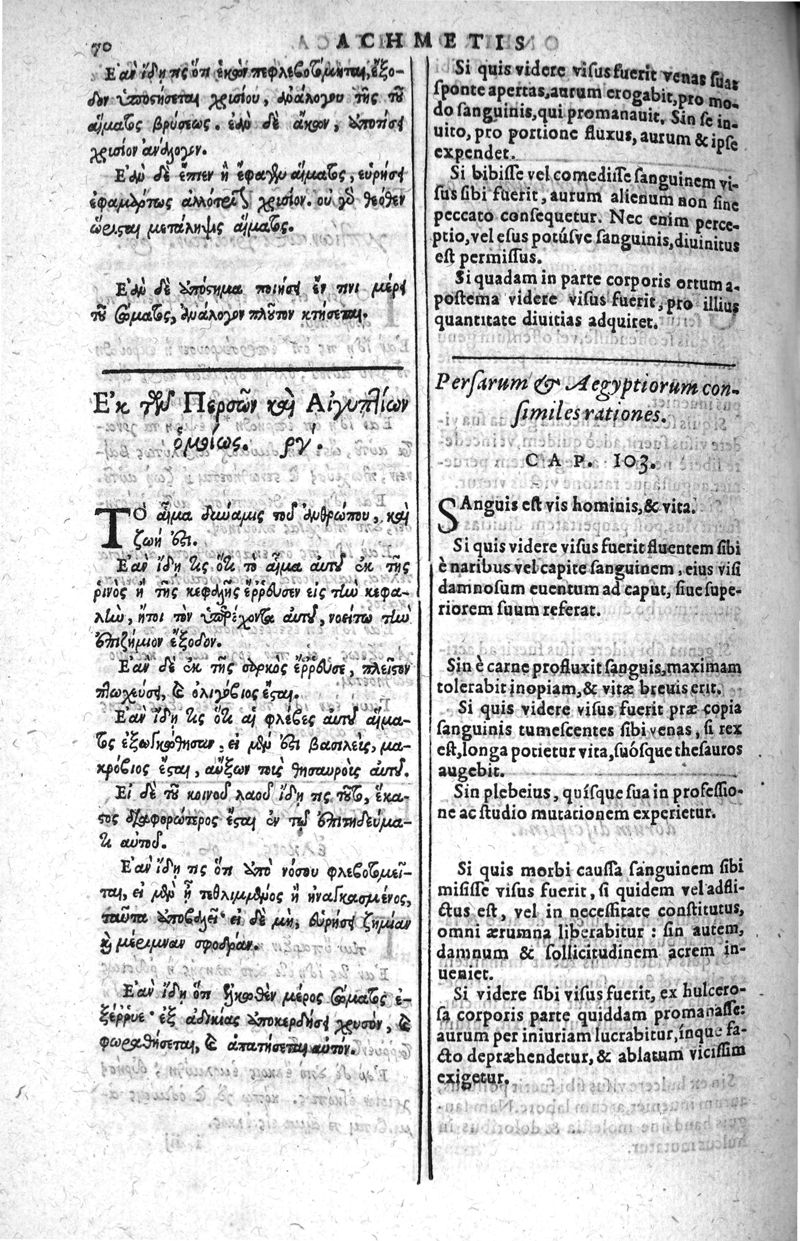 70
ACHMETIS
Ἐὰν ἴδῃ τις ὅτι ἑκὼν πεφλεβοτόμηται, ἔξο-
δον ὑποστήσεται χρυσίου, ἀνάλογον τῆς τοῦ
αἵματος βρύσεως. ἐὰν δὲ ἄκων,
χρυσίον ἀνάλογον.
Ἐὰν δὲ ἔπιεν ἢ ἔφαγεν αἵματος, εὑρήσει
ἐφαμάρτως ἀλλότριον χρυσίον. οὐ γὰρ θεόθεν
ὥρισται μετάληψις αἵματος.
Ἐὰν δὲ ἀπόστημα ποιήσῃ ἔν τινι μέρει
τοῦ σώματος, ἀνάλογον πλοῦτον κτήσεται.
Ἐκ τῶν Περσῶν καὶ Αἰγυπτίων
ὁμοίως. ργ΄.
ΤΟ αἷμα δύναμις τοῦ ἀνθρώπου, καὶ
ζωή ἐστι.
Ἐὰν ἴδῃ τις ὅτι τὸ αἷμα αὐτοῦ ἐκ τῆς
ῥινὸς ἢ τῆς κεφαλῆς ἔρρευσεν εἰς τὴν κεφα-
λὴν, ἤτοι τὸν ὑπερέχοντα αὐτοῦ, νοείτω τὴν
ἐπιζήμιον ἔξοδον.
Ἐὰν δὲ ἐκ τῆς σαρκὸς ἔρρευσε, πλεῖστον
πτωχεύσει, καὶ ὀλιγόβιος ἔσται.
Ἐὰν ἴδῃ τις ὅτι αἱ φλέβες αὐτοῦ αἵμα-
τος ἐξωγκώθησαν, εἰ μέν ἐστι βασιλεὺς, μα-
κρόβιος ἔσται, αὔξων τοὺς θησαυροὺς αὐτοῦ.
Εἰ δὲ τοῦ κοινοῦ λαοῦ ἴδῃ τις τοῦτο, ἕκα-
στος διαφορώτερος ἔσται ἐν τῷ ἐπιτηδεύμα-
τι αὐτοῦ.
Ἐὰν ἴδῃ τις ὅτι ὑπὸ νόσου φλεβοτομεῖ-
ται, εἰ μὲν ᾖ τεθλιμμένος ἢ ἠναγκασμένος,
ταῦτα ἀποβαλεῖ· εἰ δὲ μὴ, εὑρήσει ζημίαν
καὶ μέριμναν σφοδράν.
Ἐὰν ἴδῃ ὅτι ἡλκώθη μέρος σώματος
ἐξ ἀδικίας ἀποκερδήσει χρυσὸν, καὶ
φωραθήσεται, καὶ ἀπαιτήσεται αὐτόν.
Si quis videre visus fuerit venas suas
sponte apertas, aurum erogabit, pro mo-
do sanguinis, qui promanauit. Sin se in-
uito, pro portione fluxus, aurum & ipse
expendet.
Si bibisse vel comedisse sanguinem vi-
sus sibi fuerit, aurum alienum non sine
peccato consequetur. Nec enim perce-
ptio, vel esus potúsve sanguinis, diuinitus
est permissus.
Si quadam in parte corporis ortum a-
postema videre visus fuerit, pro illius
quantitate diuitias adquiret.
Persarum & Aegyptiorum con-
similes rationes.
CAP. 103.
SAnguis est vis hominis, & vita.
Si quis videre visus fuerit fluentem sibi
è naribus vel capite sanguinem, eius visi
damnosum euentum ad caput, siue supe-
riorem suum referat.
Sin è carne profluxit sanguis, maximam
tolerabit inopiam, & vitæ breuis erit.
Si quis videre visus fuerit præ copia
sanguinis tumescentes sibi venas, si rex
est, longa potietur vita, suósque thesauros
augebit.
Sin plebeius, quísque sua in professio-
ne ac studio mutationem experietur.
Si quis morbi caussa sanguinem sibi
misisse visus fuerit, si quidem vel adfli-
ctus est, vel in necessitate constitutus,
omni ærumna liberabitur: sin autem,
damnum & sollicitudinem acrem in-
ueniet.
Si videre sibi visus fuerit, ex hulcero-
sa corporis parte quiddam promanasse:
aurum per iniuriam lucrabitur, ínque fa-
cto depræhendetur, & ablatum vicissim
exigetur.